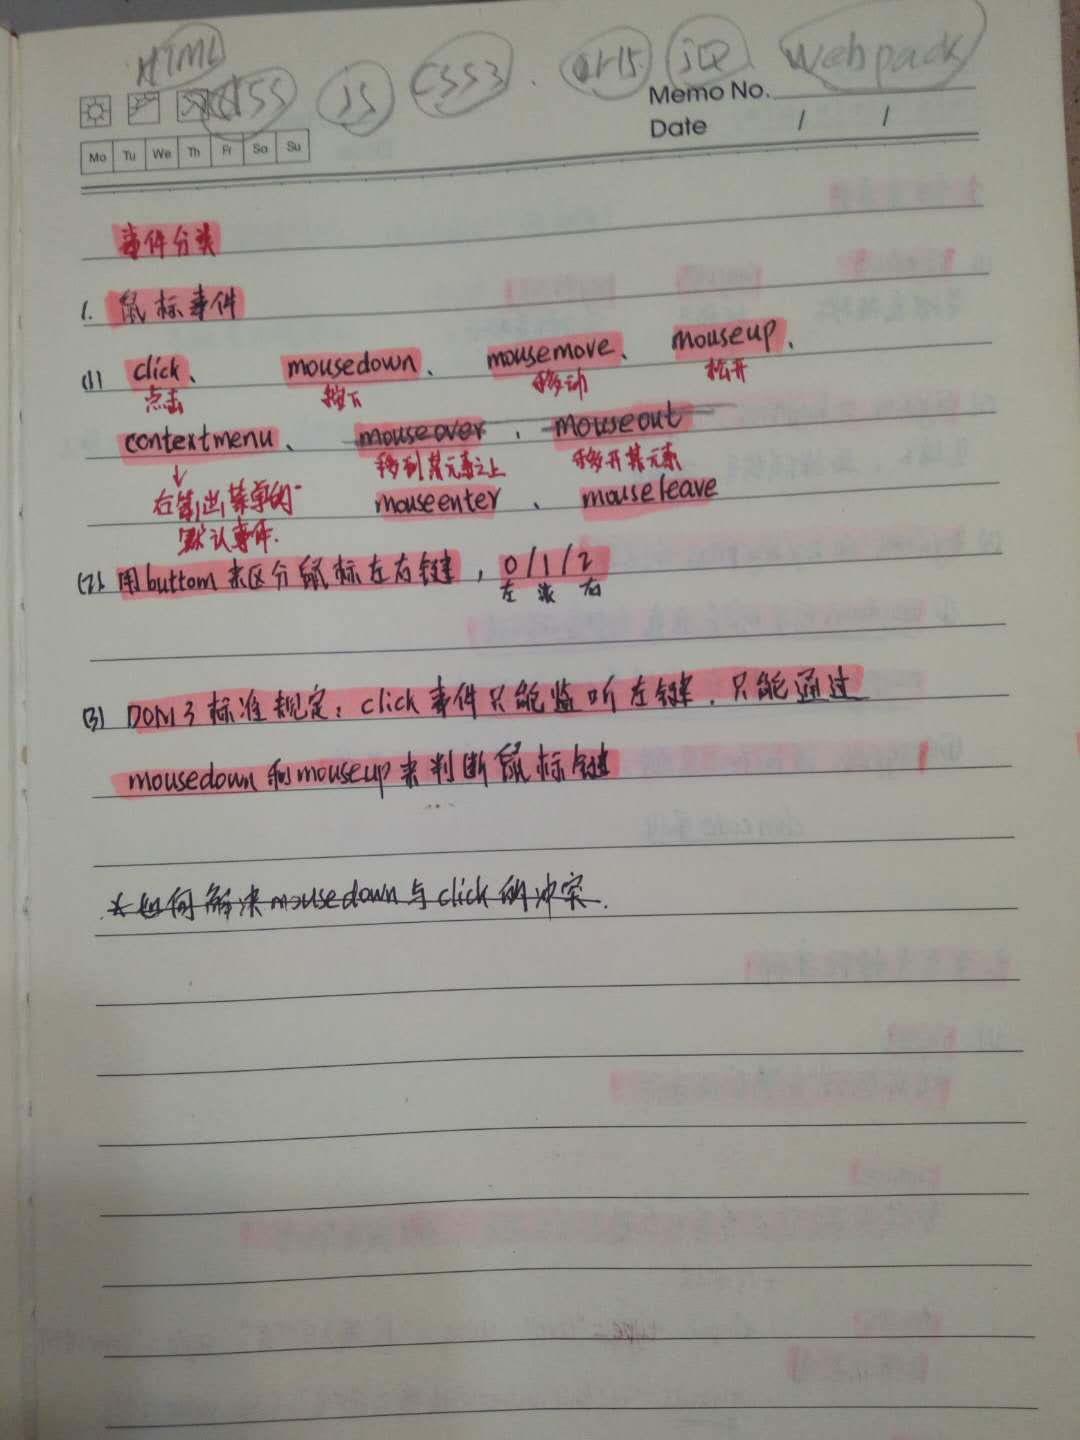 HTML CSS JS CSS3 . H5 jQ webpack
Memo No.
Date / /
Mo Tu We Th Fr Sa Su
事件分类
1. 鼠标事件
(1) click、 mousedown、 mousemove、 mouseup、
点击 按下 移动 松开
contextmenu、 mouseover 、 mouseout
移到某元素之上 移开某元素
右 出菜单的 mouseenter 、 mouseleave
默认事件.
(2). 用buttom来区分鼠标左右键，0/1/2
左 滚 右
(3) DOM3标准规定：click事件只能监听左键，只能通过
mousedown和mouseup来判断鼠标键
*如何解决mousedown与click的冲突.